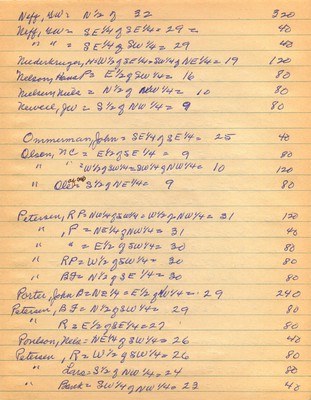 Neff, GW = N½ of 32 320
Neff, GW = SE¼ of SE¼ = 29 = 40
" " = SE¼ of SW¼ = 29 40
Niederkruger, H = W½ of SE¼ = SW¼ of NE¼ = 19 120
Nelson, Hans P = E½ of SW¼ = 16 80
Nielsen, Niels = N½ of NW¼ = 10 80
Newell, JW = S½ of NW¼ = 9 80
Ommerman, John = SE¼ of SE¼ = 25 40
Olson, NC = E½ of SE¼ = 9 80
" " = W½ of SW¼ = SW¼ of NW¼ = 10 120
" Ole = S½ of NE¼ = 9 80
Petersen, RP = NW¼ of SW¼ = W½ of NW¼ = 31 120
" , P = NE¼ of NW¼ = 31 40
" " = E½ of SW¼ = 30 80
" RP = W½ of SW¼ = 30 80
" BF = N½ of SE¼ = 30 80
Porter, John B = NE¼ = E½ of NW¼ = 29 240
Petersen, BF = N½ of SW¼ = 29 80
" R = E½ of SE¼ = 27 80
Poulson, Niels = NE¼ of SW¼ = 26 40
Petersen, R = W½ of SW¼ = 26 80
" Lars = S½ of NW¼ = 24 80
" = SW¼ of NW¼ = 23 40